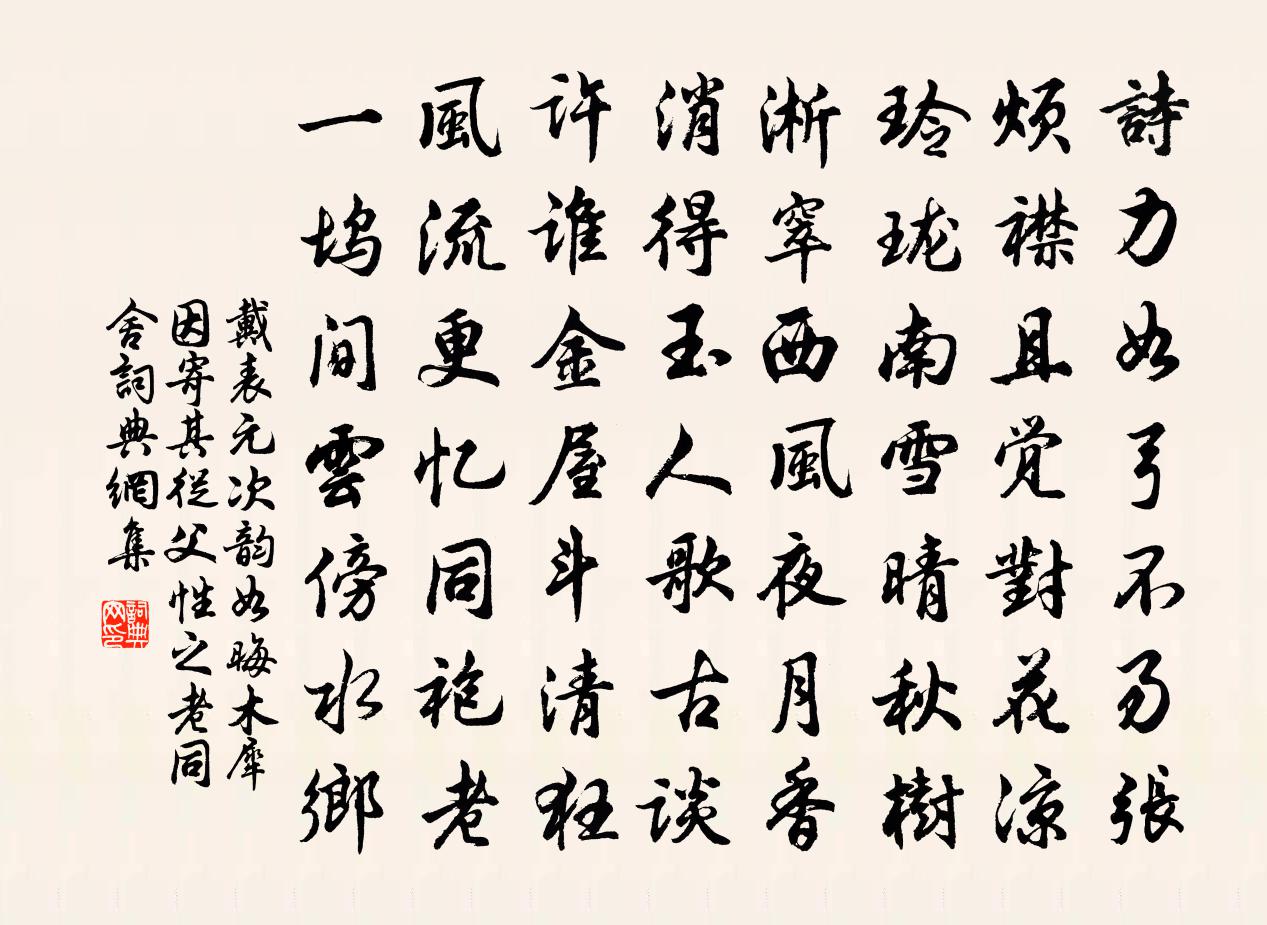 詩力如弓不易張
煩襟且觉對花涼
玲珑南雪晴秋樹
淅窣西風夜月香
消得玉人歌古谈
许谁金屋斗清狂
風流更忆同袍老
一坞间雲傍水鄉
戴表元次韵如晦木犀
因寄其従父性之老同
舍詞典網集
詞典
网印